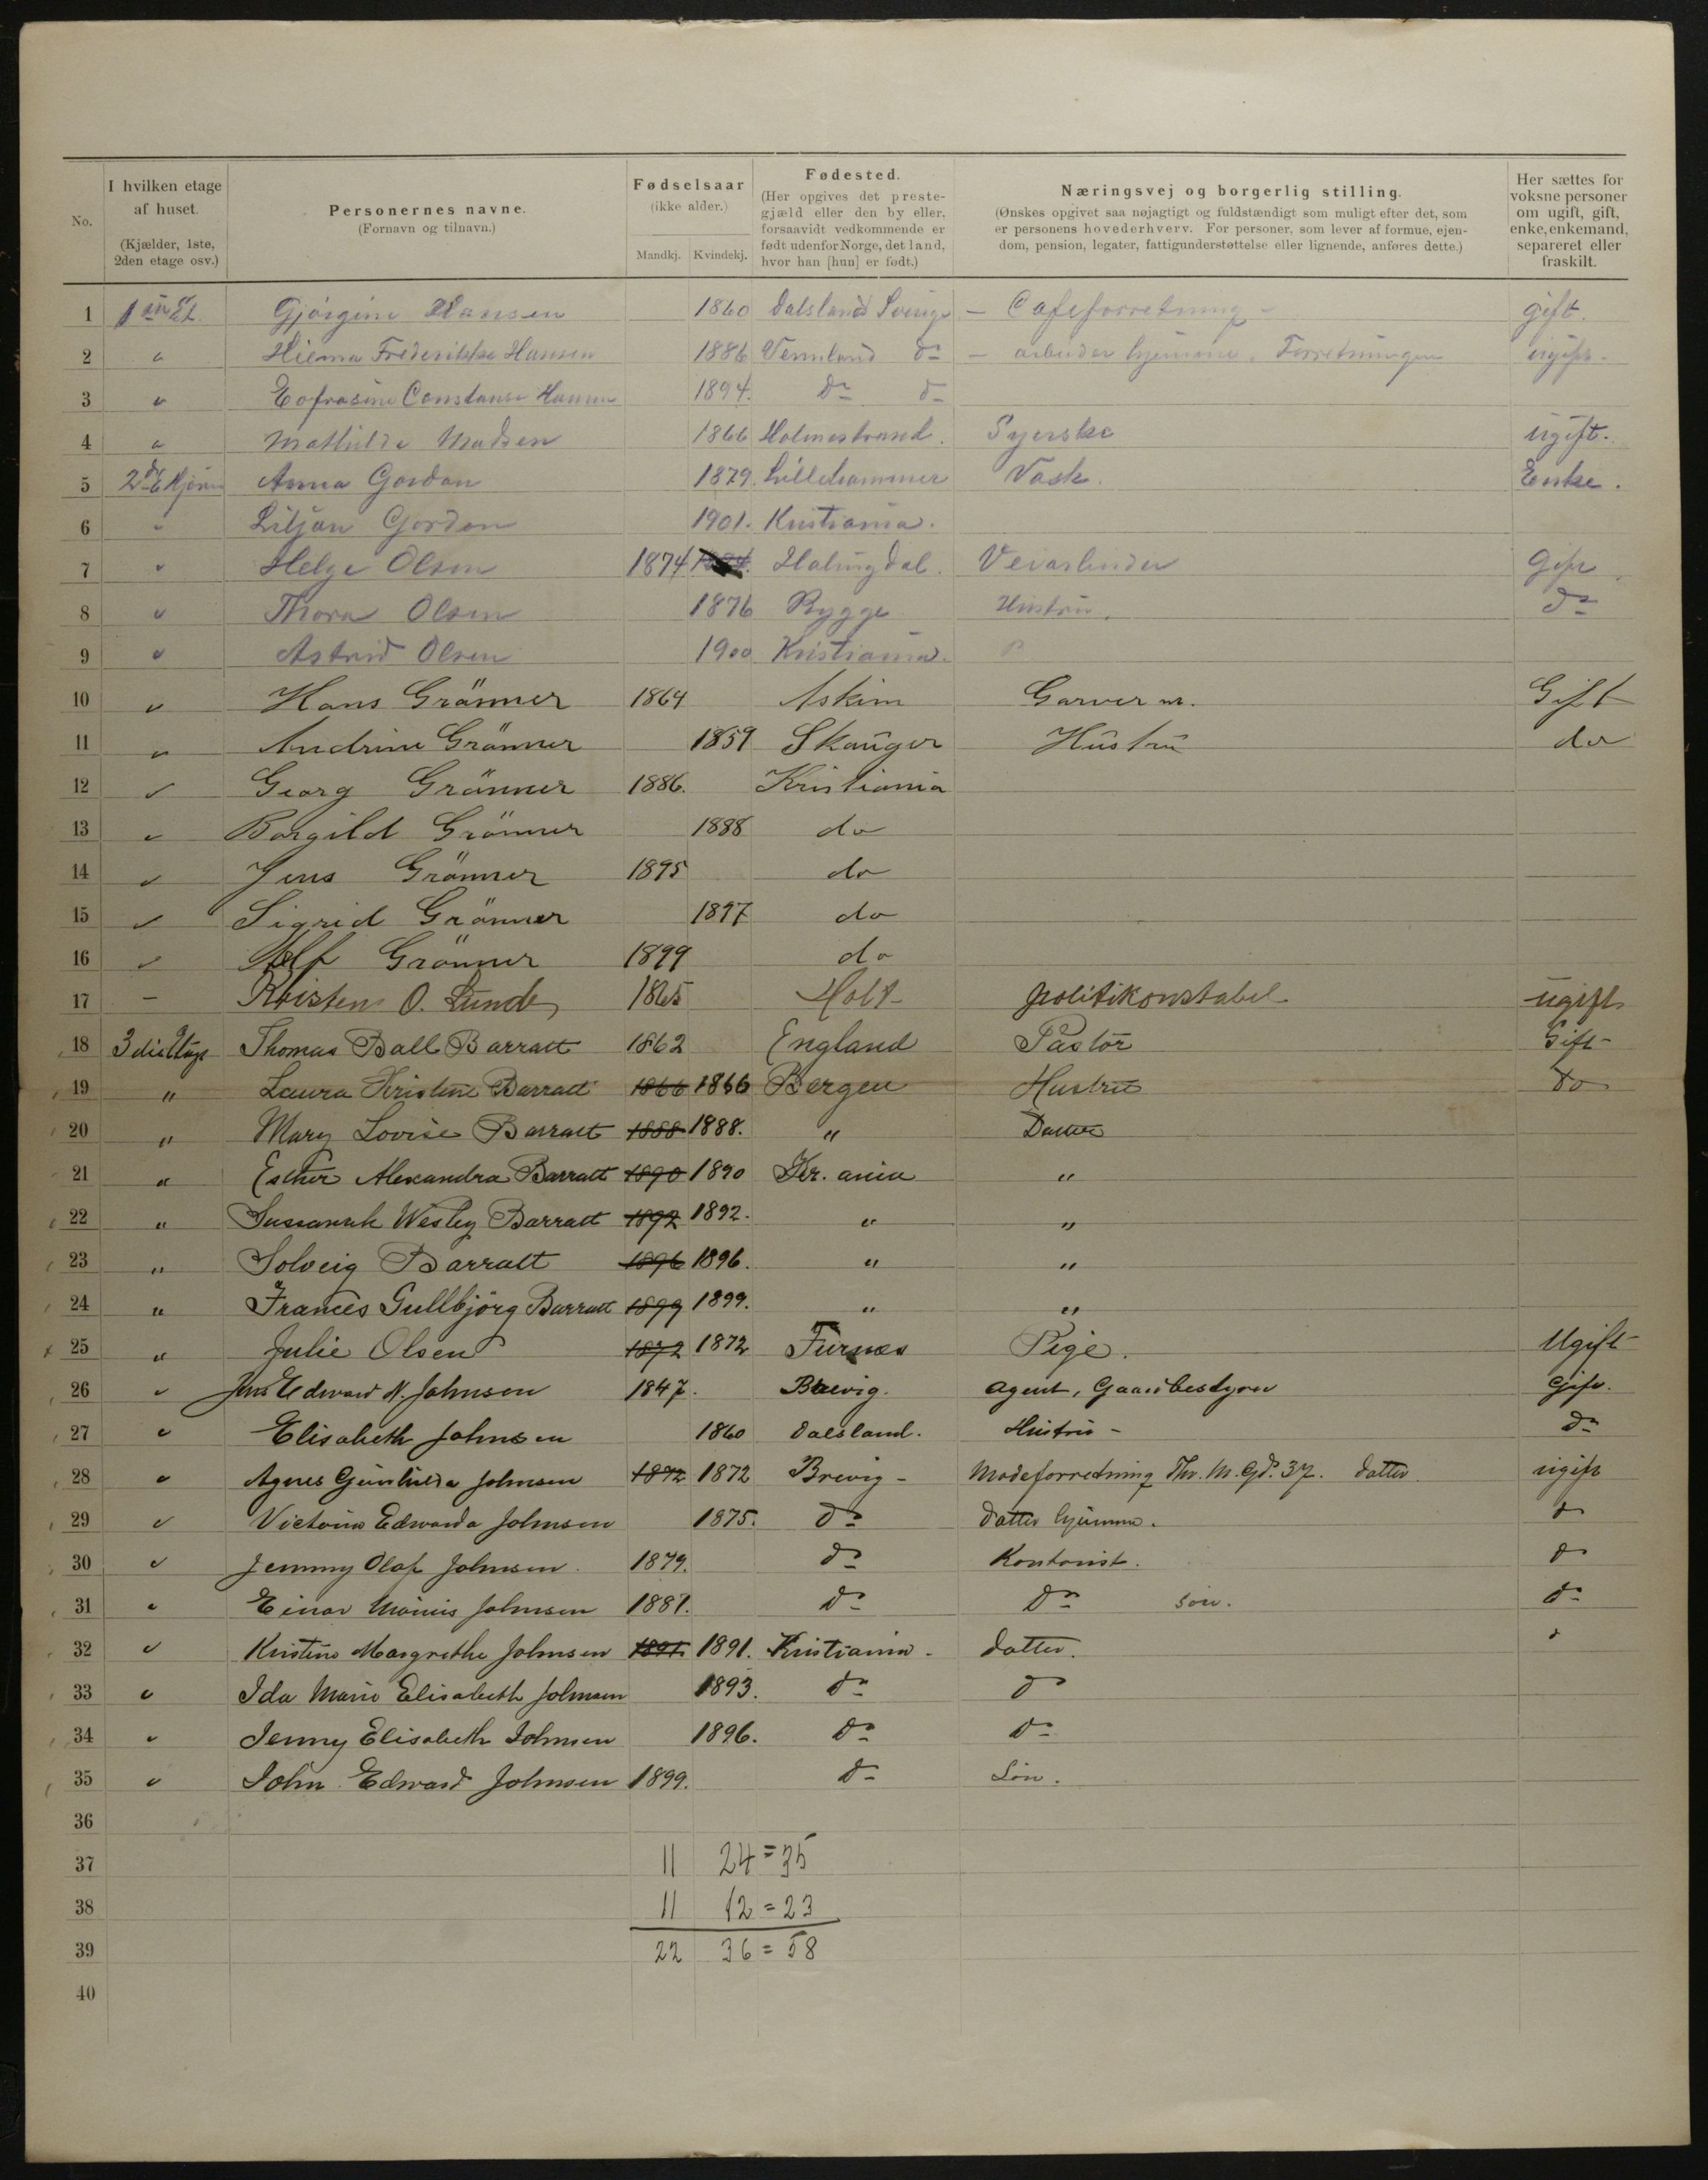 No.
I hvilken etage af huset.
(Kjælder, 1ste, 2den etage osv.)
Personernes navne.
(Fornavn og tilnavn.)
Fødselsaar
(ikke alder.)
Mandkj. Kvindekj.
Fødested.
(Her opgives det prestegjæld eller den by eller, forsaavidt vedkommende er født udenfor Norge, det land, hvor han [hun] er født.)
Næringsvej og borgerlig stilling.
(Ønskes opgivet saa nøjagtigt og fuldstændigt som muligt efter det, som er personens hovederhverv. For personer, som lever af formue, ejendom, pension, legater, fattigunderstøttelse eller lignende, anføres dette.)
Her sættes for voksne personer om ugift, gift, enke, enkemand, separeret eller fraskilt.
1 1ste Et. Gjørgine Hansen 1860 Dalsland Sverige – Cafeforretning – gift.
2 " Hilma Frederikke Hansen 1886 Vermland do – arbeider hjemme i Forretningen ugift.
3 " Eofrasine Constanse Hansen 1894. do do
4 " Mathilde Madsen 1866 Holmestrand. Syerske ugift.
5 Anna Gordon 1879. Lillehammer Vask. Enke.
6 " Liljan Gordon 1901. Kristiania.
7 " Helge Olsen 1874 Halingdal. Veiarbeider Gift
8 " Thora Olsen 1876 Rygge Hustru. do
9 " Astrid Olsen 1900 Kristiania.
10 " Hans Grönner 1864 Askim Garver m. Gift
11 " Andrine Grönner 1859 Skauger Hustru do
12 " Georg Grönner 1886. Kristiania
13 " Borgild Grönner 1888 do
14 " Jens Grönner 1895 do
15 " Sigrid Grönner 1897 do
16 " Alf Grönner 1899 do
17 – Kristen O. Lunde 1865 Holt politikonstabel ugift
18 3die Etage Thomas Ball Barratt 1862 England Pastor Gift
19 " Laura Kristine Barratt 1866 1866 Bergen Hustru do
20 " Mary Lovise Barratt 1888 1888. " Datter
21 " Esther Alexandra Barratt 1890 1890 Kr. ania "
22 " Susannah Wesley Barratt 1892 1892. " "
23 " Solveig Barratt 1896 1896. " "
24 " Frances Gullbjörg Barratt 1899 1899. " "
25 " Julie Olsen 1872 1872 Furnes Pige. Ugift
26 " Jens Edward N. Johnsen 1847. Brevig. Agent, Gaardbestyrer Gift.
27 " Elisabeth Johnsen 1860 Dalsland. Hustru – do
28 " Agnes Gunhilda Johnsen 1872 1872 Brevig – Modeforretning Thv. M. Gd. 37. Datter ugift
29 " Victoria Edwarda Johnsen 1875. do Datter hjemme. do
30 " Jemmy Olaf Johnsen. 1879. do Kontorist. do
31 " Einar Johnsen 1881. do do søn. do
32 " Kristine Margrethe Johnsen 1891. 1891. Kristiania. datter.
33 " Ida Marie Elisabeth Johnsen 1893. do do
34 " Jenny Elisabeth Johnsen 1896. do do
35 " John Edward Johnsen 1899. do Søn.
36
37 11 24 = 35
38 11 12 = 23
39 22 36 = 58
40